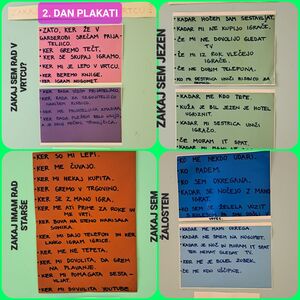 2. DAN PLAKATI
ZAKAJ SEM RAD V
VRTCU?
- ZATO, KER ŽE V
GARDEROBI SREČAM PRIJA-
TELJICO.
- KER GREMO TEČT.
- KER SE SKUPAJ IGRAMO.
- KER MI JE LEPO V VRTCU.
- KER BEREMO KNJIGE.
- KER IGRAM NOGOMET.
ZAKAJ SEM JEZEN
- KADAR HOČEM SAM SESTAVLJAT.
- KADAR MI NE KUPIJO IGRAČO.
- ČE MI NE DOVOLIJO GLEDAT
TV
- ČE MI IZ ROK VLEČEJO
IGRAČO.
- ČE NE DOBIM TELEFONA.
- KO MI SESTRICA UNIČI
- KADAR ME KDO TEPE.
- KUŽA JE BIL JEZEN JE HOTEL
UGRIZNIT.
- KADAR MI SESTRICA UNIČI
IGRAČO.
- ČE MORAM IT SPAT.
ZAKAJ IMAM RAD
STARŠE
- KER SO MI LEPI.
- KER ME ČUVAJO.
- KER MI KEKS KUPITA.
- KER GREMO V TRGOVINO.
- KER SE Z MANO IGRA.
- KER ME ATI PRIDE ZA ROKE IN
ME VRTI.
- KER BOVA MI NARISALA
SONČKA.
- KER MI DAJO TELEFON IN KER
LAHKO IGRAM IGRICE.
- KER MI NE TEPEJO.
- KER MI DOVOLITA, DA GREM
NA PLAVANJE.
- KER MI POMAGATA SESTA-
VLJAT.
- KER MI DOVOLITA YOUTUBE.
ZAKAJ SEM
ŽALOSTEN
- KO ME NEKDO UDARI.
- KO PADEM.
- KO SEM OKREGANA.
- KADAR SE NOČEJO Z MANO
IGRAT.
- KADAR ME MAMA OKREGA.
- KADAR NE SMEM NA NOGOMET.
- KADAR JE NOČ IN MORAM IT SPAT
TER NE SMEM GLEDAT TV.
- KER ME JE BOLEL ZOBEK.
- ČE ME KDO UŠČIPNE.